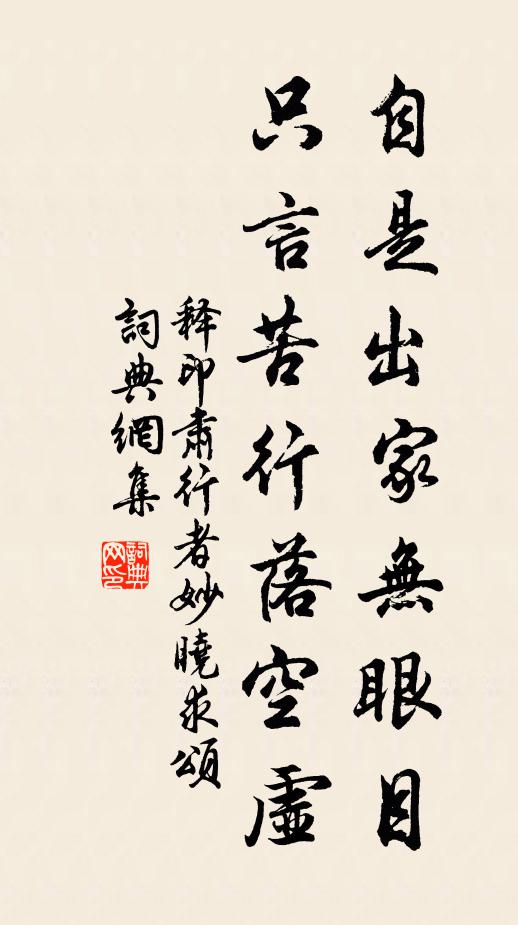 自是出家無眼目
只言苦行落空虛
释印肅行者妙曉求頌
詞典網集
詞典网印